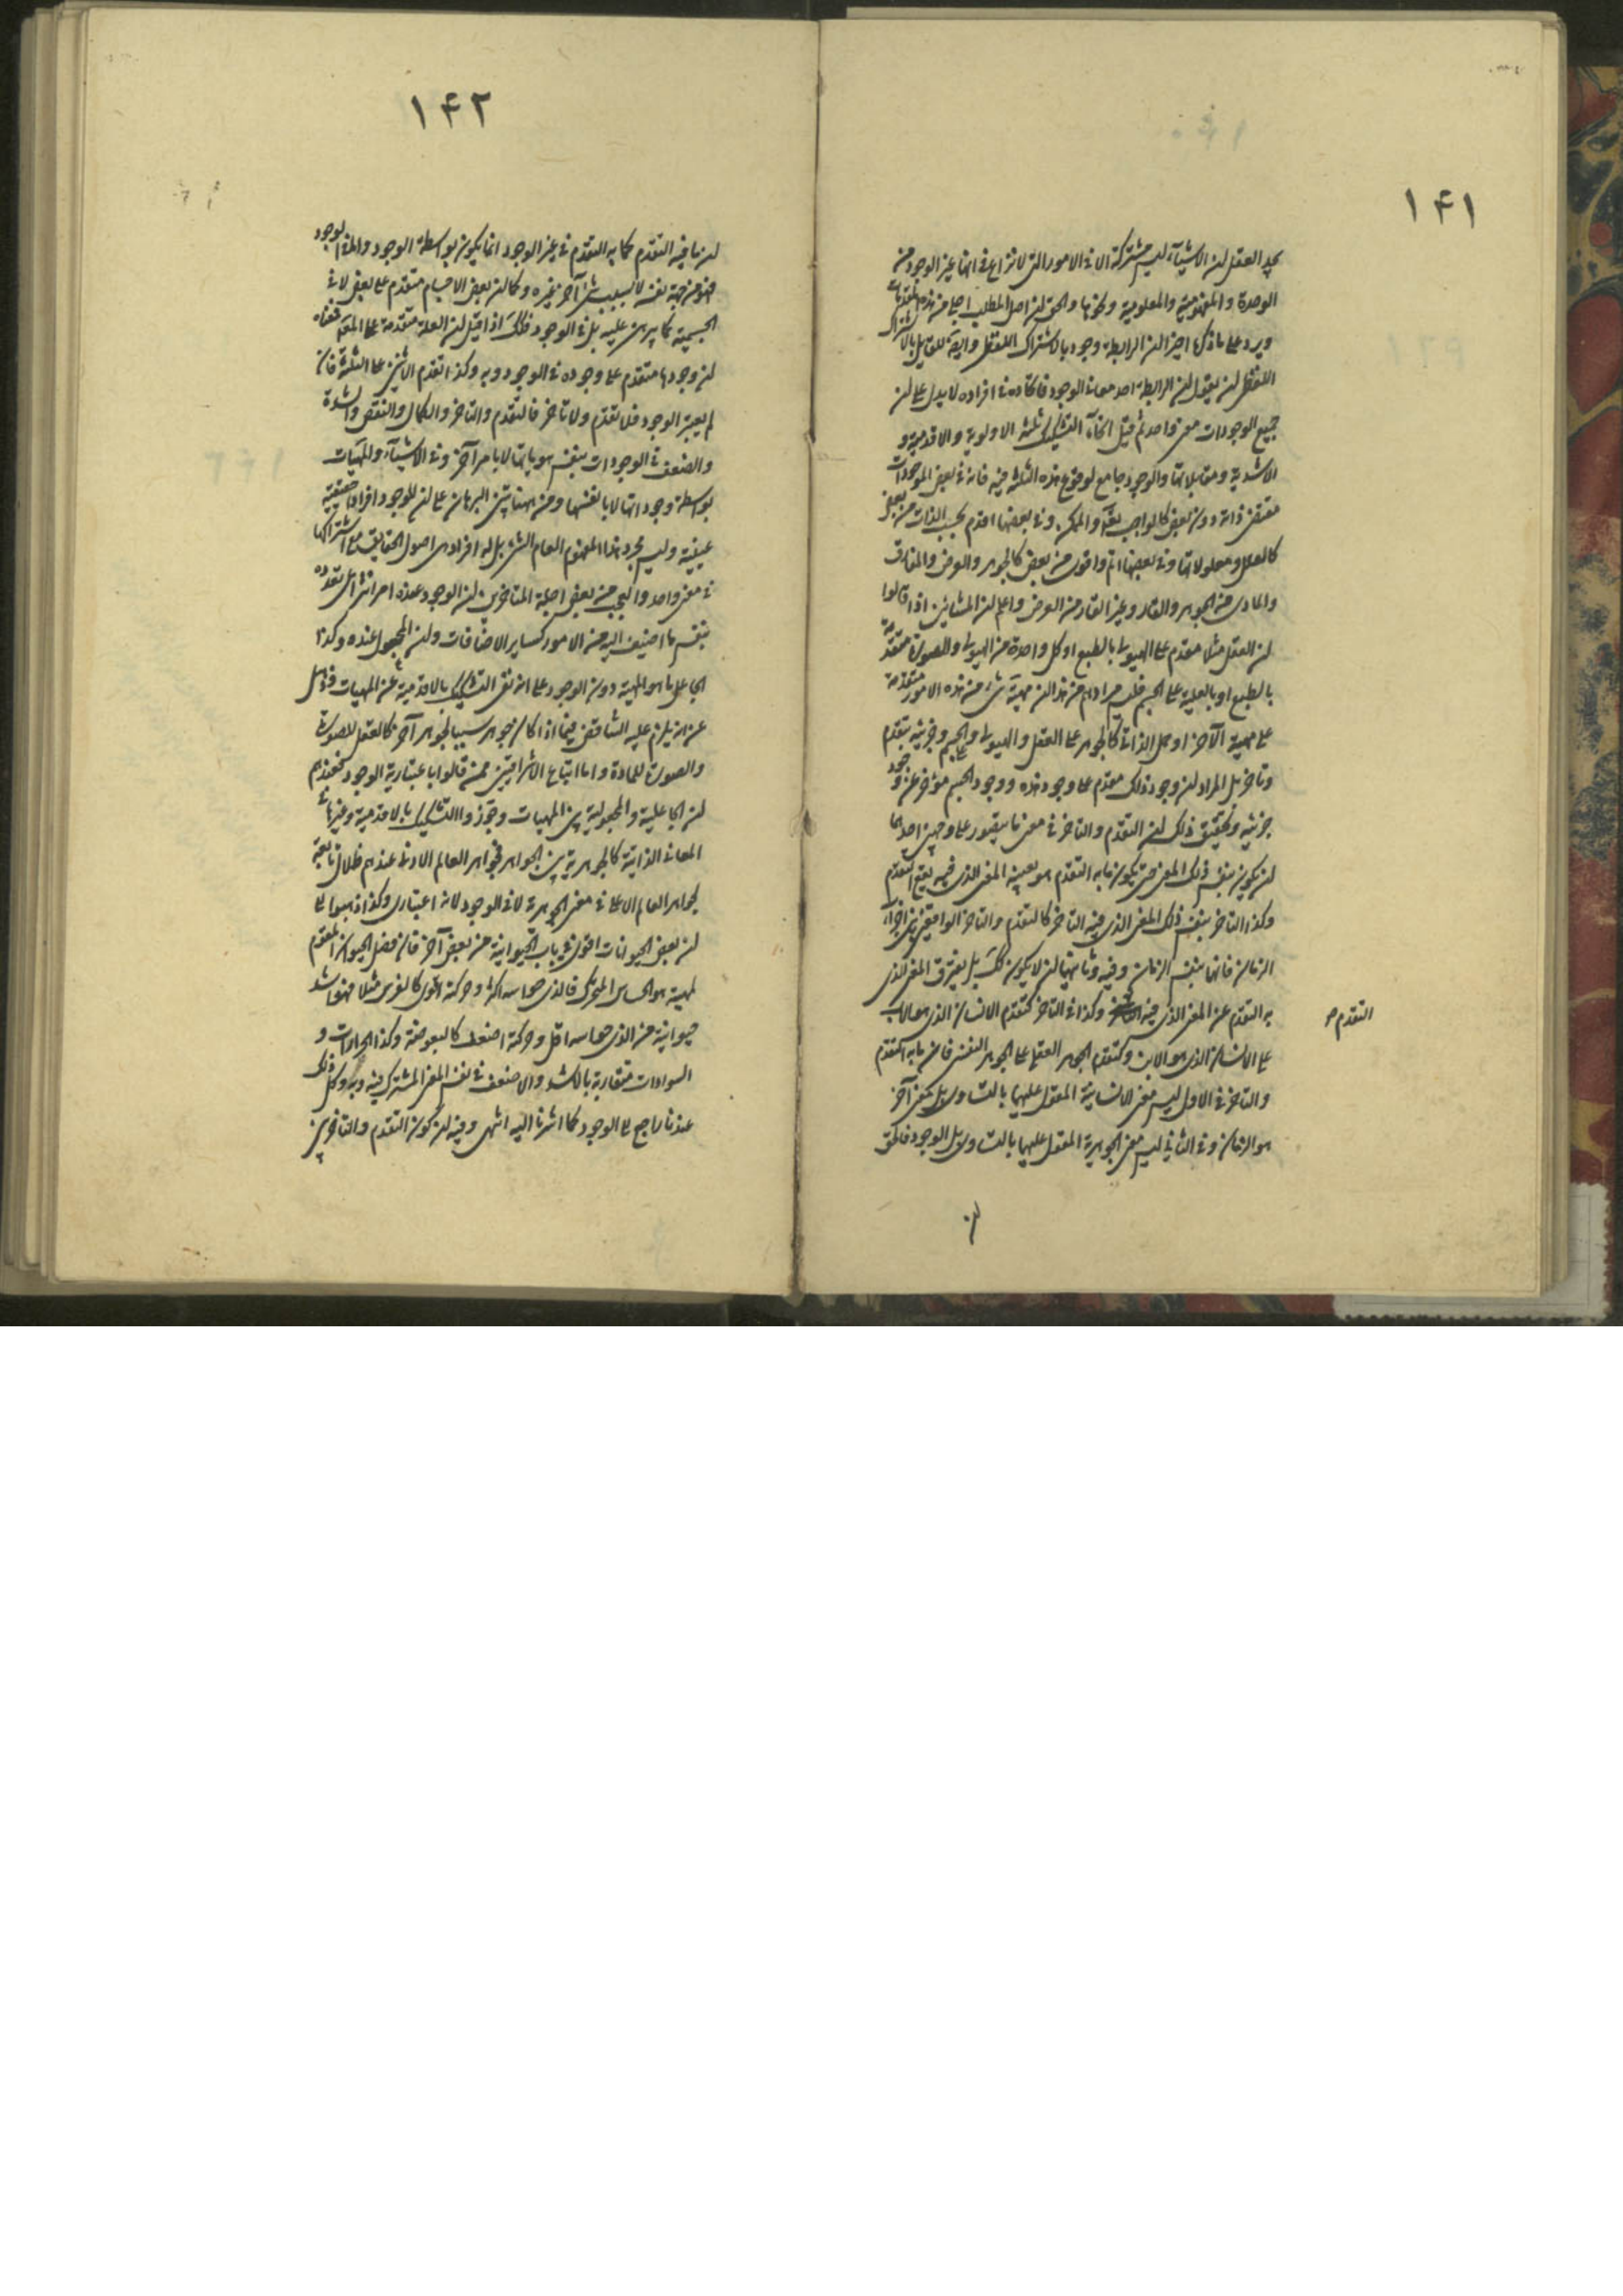 ١۴١
يجد العقل ان الاشياء ليست مشتركة الا فى الامور التى لا نزاع فى انها غير الوجود من
الوحدة والمفهومية والمعلومية ونحوها والحق ان اصل المطلب اجلى من هذه المقدمات
ويرد على ما ذكره اخيرا ان الرابطة وجود بالاشتراك اللفظى وايضا للقايل بالاشتراك
اللفظى ان يقول ان الرابطة احد معانى الوجود فاتحاده فى افراده لا يدل على ان
جميع الوجودات معنى واحد ثم قيل انحاء التشكيك ثلثة الاولوية والاقدمية و
الاشدية ومقابلاتها والوجود جامع لوقوع هذه الثلثة فيه فانه فى بعض الموجودات
مقتضى ذاته دون بعض كالواجب تعالى والممكن وفى بعضها اقدم بحسب الذات من بعض
كالعلل ومعلولاتها وفى بعضها اتم واقوى من بعض كالجوهر والعرض والمفارق
والمادى من الجوهر والقار وغير القار من العرض واعلم ان المشائين اذا قالوا
ان العقل مثلا متقدم على الهيولى بالطبع او كل واحدة من الهيولى والصورة متقدمة
بالطبع او بالعلية على الجسم فليس مرادهم من هذا ان مهية شىء من هذه الامور متقدمة
على مهية الآخر او حمل الذاتى كالجوهر على العقل والهيولى وعلى الجسم وجزئيه بتقدم
وتاخر بل المراد ان وجود ذلك متقدم على وجود هذه ووجود الجسم مؤخر عن وجود
جزئيه وتحقيق ذلك ان التقدم والتاخر فى معنى ما يتصور على وجهين احدهما
ان يكون بنفس ذلك المعنى حتى يكون ما به التقدم هو بعينه المعنى الذى فيه يقع التقدم
وكذا التاخر بنفس ذلك المعنى الذى فيه التاخر كالتقدم والتاخر الواقعين بين اجزاء
الزمان فانهما بنفس الزمان وفيه وثانيهما ان لا يكون كك بل يفترق المعنى الذى
به التقدم عن المعنى الذى فيه وكذا فى التاخر كتقدم الانسان الذى هو الاب
التقدم صح
على الانسان الذى هو الابن وكتقدم الجوهر العقلى على الجوهر النفسى فان ما به التقدم
والتاخر فى الاول ليس معنى الانسانية المقول عليهما بالتساوى بل بمعنى آخر
هو الزمان وفى الثانى ليس معنى الجوهرية المقول عليهما بالتساوى بل الوجود فالحق
ان
١۴٢
ان ما فيه التقدم كما به التقدم فى غير الوجود انما يكون بواسطة الوجود واما فى الوجود
فهو من جهة نفسه لا بسبب شىء آخر غيره وكما ان بعض الاجسام متقدم على بعض لا فى
الجسمية كما برهن عليه بل فى الوجود فكك اذا قيل ان العلة متقدمة على المعلول فمعناه
ان وجودها متقدم على وجوده فى الوجود وبه وكذا تقدم الاثنين على الثلثة فان
لم يعتبر الوجود فلا تقدم ولا تاخر فالتقدم والتاخر والكمال والنقص والشدة
والضعف فى الوجودات بنفس هوياتها لا بامر آخر وفى الاشياء والمهيات
بواسطة وجوداتها لا بانفسها ومن ههنا يتبين البرهان على ان للوجود افرادا حقيقية
عينية وليس مجرد هذا المفهوم العام النسبى بل له افراد هى اصول الحقايق مع اشتراكها
فى معنى واحد والعجب من بعض اجلة المتاخرين ان الوجود عنده امر انتزاعى تعدده
بنفس ما اضيف اليه من الامور كساير الاضافات وان المجعول عنده وكذا
الجاعل ما هو المهية دون الوجود على انه نفى التشكيك بالاقدمية عن المهيات وذهل
عن انه يلزم عليه التناقض فيما اذا كان جوهر سببا لجوهر آخر كالعقل للصورة
والصورة للمادة واما اتباع الاشراقيين ممن قالوا باعتبارية الوجود فعندهم
ان الجاعلية والمجعولية بين المهيات وجوزوا التشكيك بالاقدمية وغيرها فى
المعانى الذاتية كالجوهرية بين الجواهر فجواهر العالم الادنى عندهم ظلال تابعة
لجواهر العالم الاعلى فى معنى الجوهرية لا فى الوجود لانه اعتبارى وكذا ذهبوا الى
ان بعض الحيوانات اقوى فى باب الحيوانية من بعض آخر فان فصل الحيوان المقوم
لمهيته هو الحساس المتحرك فالذى حواسه اكثر وحركته اقوى كالفرس مثلا فهو اشد
حيوانية من الذى حواسه اقل وحركته اضعف كالبعوضة وكذا الحرارات و
السوادات متقاربة بالاشد والاضعف فى نفس المعنى المشترك فيه وبه وكل ذلك
عندنا راجع الى الوجود كما اشرنا اليه انتهى وفيه ان كون التقدم والتاخر بين